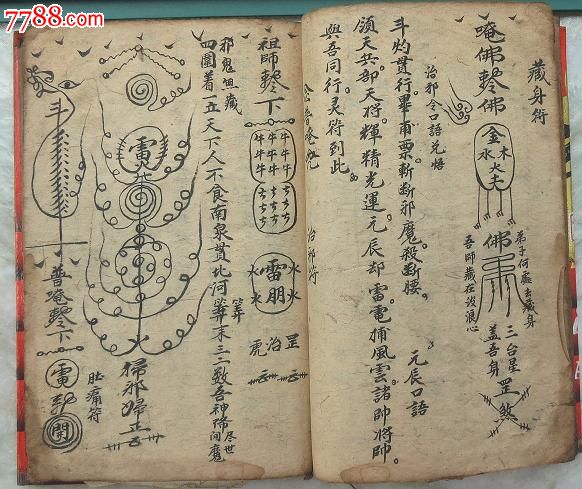 7788.com
藏身術
唵佛勅佛
金木水火土
佛
弟子何處去藏身
吾師藏在波浪心
三台星
蓋吾身
罡煞
治邪令口語允悟
元辰口語
斗灼貫行。畢甫票。斬斷邪魔。殺斷腰。
領天兵。部天将。輝精光運。元辰却。雷電捕風雲。諸帥將帥。
與吾同行。灵符到此。
治邪符
祖師勅下
牛牛牛
牛牛牛
牛牛牛
雷
火火
火火
罡治
邪鬼無藏
四圍着
立天下人不食南泉貫北河
筭筭末三二數吾神降間魔
尽世
斗
雷
火
掃邪歸正
普唵勅下
雷
開
肚痛符